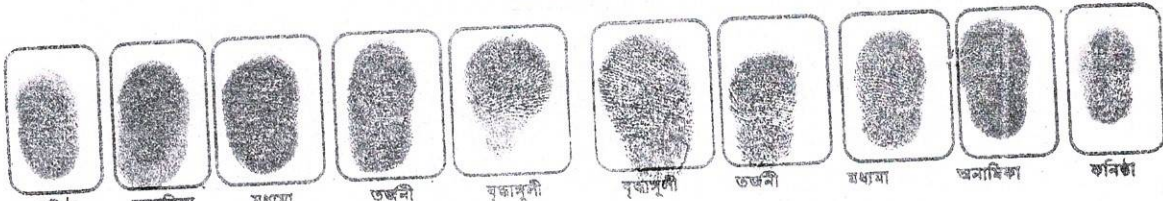 মধ্যমা তর্জনী বৃদ্ধাঙ্গুলী বৃদ্ধাঙ্গুলী তর্জনী মধ্যমা অনামিকা কনিষ্ঠা